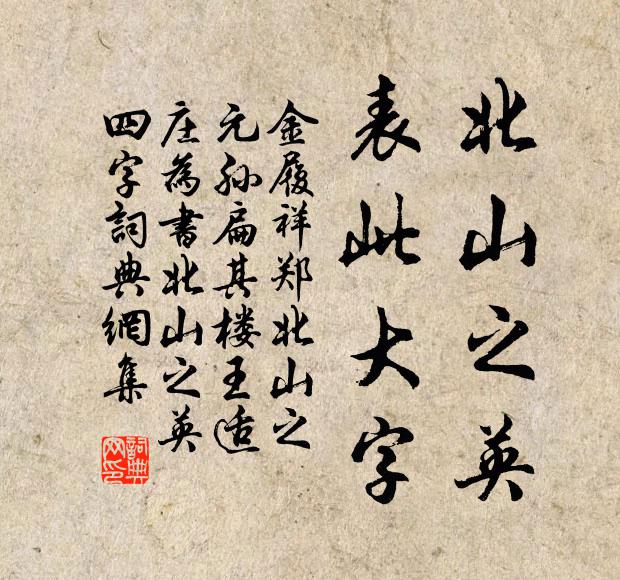 北山之英
表此大字
金履祥郑北山之
元孙扁其楼王适
庄為書北山之英
四字詞典網集
詞典
网印